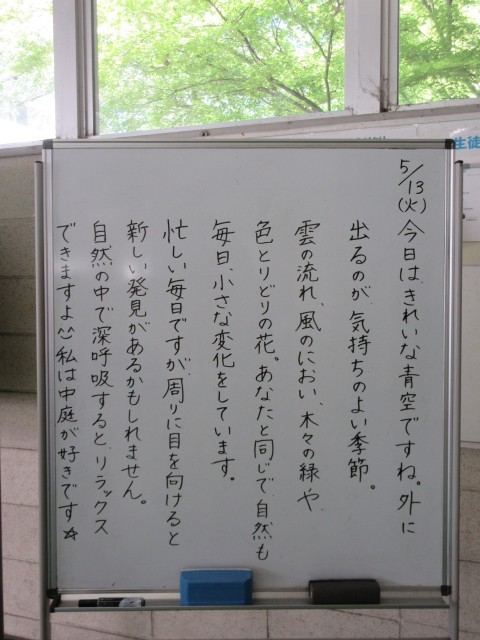 5/13(火)今日は、きれいな青空ですね。外に
出るのが、気持ちのよい季節。
雲の流れ、風のにおい、木々の緑や、
色とりどりの花。あなたと同じで、自然も
毎日、小さな変化をしています。
忙しい毎日ですが、周りに目を向けると
新しい発見があるかもしれません。
自然の中で深呼吸すると、リラックス
できますよ^^私は中庭が好きです☆
生徒